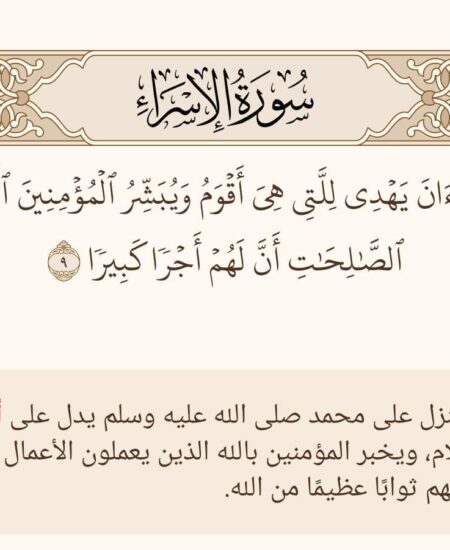 سُورَةُ الإِسْرَاءِ
ءَانَ يَهْدِى لِلَّتِى هِىَ أَقْوَمُ وَيُبَشِّرُ ٱلْمُؤْمِنِينَ
ٱلصَّـٰلِحَـٰتِ أَنَّ لَهُمْ أَجْرًا كَبِيرًا ٩
نزل على محمد صلى الله عليه وسلم يدل على
لام، ويخبر المؤمنين بالله الذين يعملون الأعمال
هم ثوابًا عظيمًا من الله.